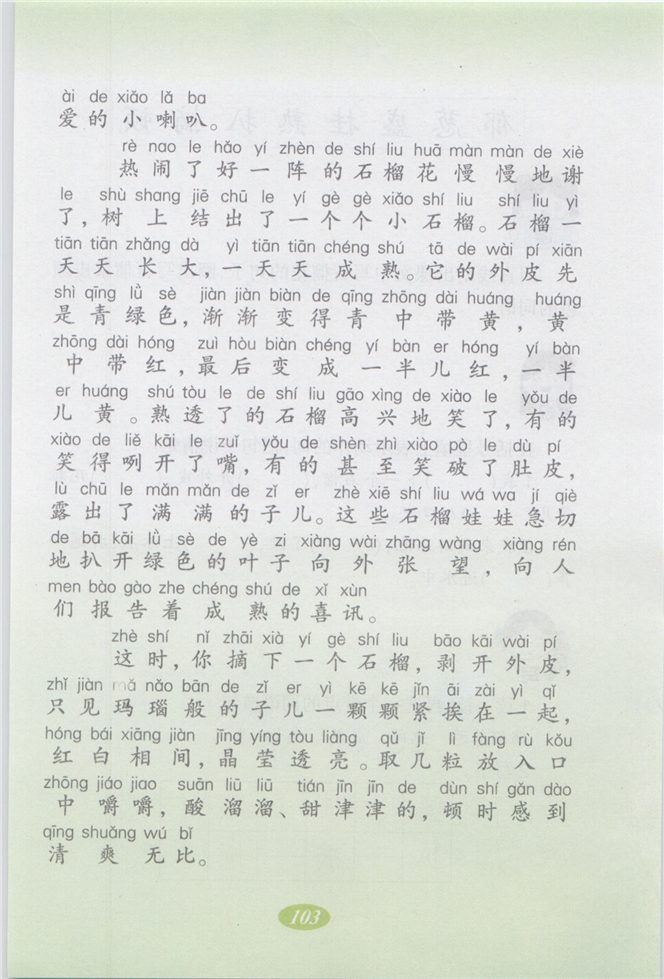 ài de xiǎo lǎ ba
爱的小喇叭。
rè nao le hǎo yí zhèn de shí liu huā màn màn de xiè
热闹了好一阵的石榴花慢慢地谢
le shù shang jiē chū le yí gè gè xiǎo shí liu shí liu yì
了,树上结出了一个个小石榴。石榴一
tiān tiān zhǎng dà yì tiān tiān chéng shú tā de wài pí xiān
天天长大,一天天成熟。它的外皮先
shì qīng lǜ sè jiàn jiàn biàn de qīng zhōng dài huáng huáng
是青绿色,渐渐变得青中带黄,黄
zhōng dài hóng zuì hòu biàn chéng yí bàn er hóng yí bàn
中带红,最后变成一半儿红,一半
er huáng shú tòu le de shí liu gāo xìng de xiào le yǒu de
儿黄。熟透了的石榴高兴地笑了,有的
xiào de liě kāi le zuǐ yǒu de shèn zhì xiào pò le dù pí
笑得咧开了嘴,有的甚至笑破了肚皮,
lù chū le mǎn mǎn de zǐ er zhè xiē shí liu wá wa jí qiè
露出了满满的子儿。这些石榴娃娃急切
de bā kāi lǜ sè de yè zi xiàng wài zhāng wàng xiàng rén
地扒开绿色的叶子向外张望,向人
men bào gào zhe chéng shú de xǐ xùn
们报告着成熟的喜讯。
zhè shí nǐ zhāi xià yí gè shí liu bāo kāi wài pí
这时,你摘下一个石榴,剥开外皮,
zhǐ jiàn mǎ nǎo bān de zǐ er yì kē kē jǐn āi zài yì qǐ
只见玛瑙般的子儿一颗颗紧挨在一起,
hóng bái xiāng jiàn jīng yíng tòu liàng qǔ jǐ lì fàng rù kǒu
红白相间,晶莹透亮。取几粒放入口
zhōng jiáo jiao suān liū liū tián jīn jīn de dùn shí gǎn dào
中嚼嚼,酸溜溜、甜津津的,顿时感到
qīng shuǎng wú bǐ
清爽无比。
103